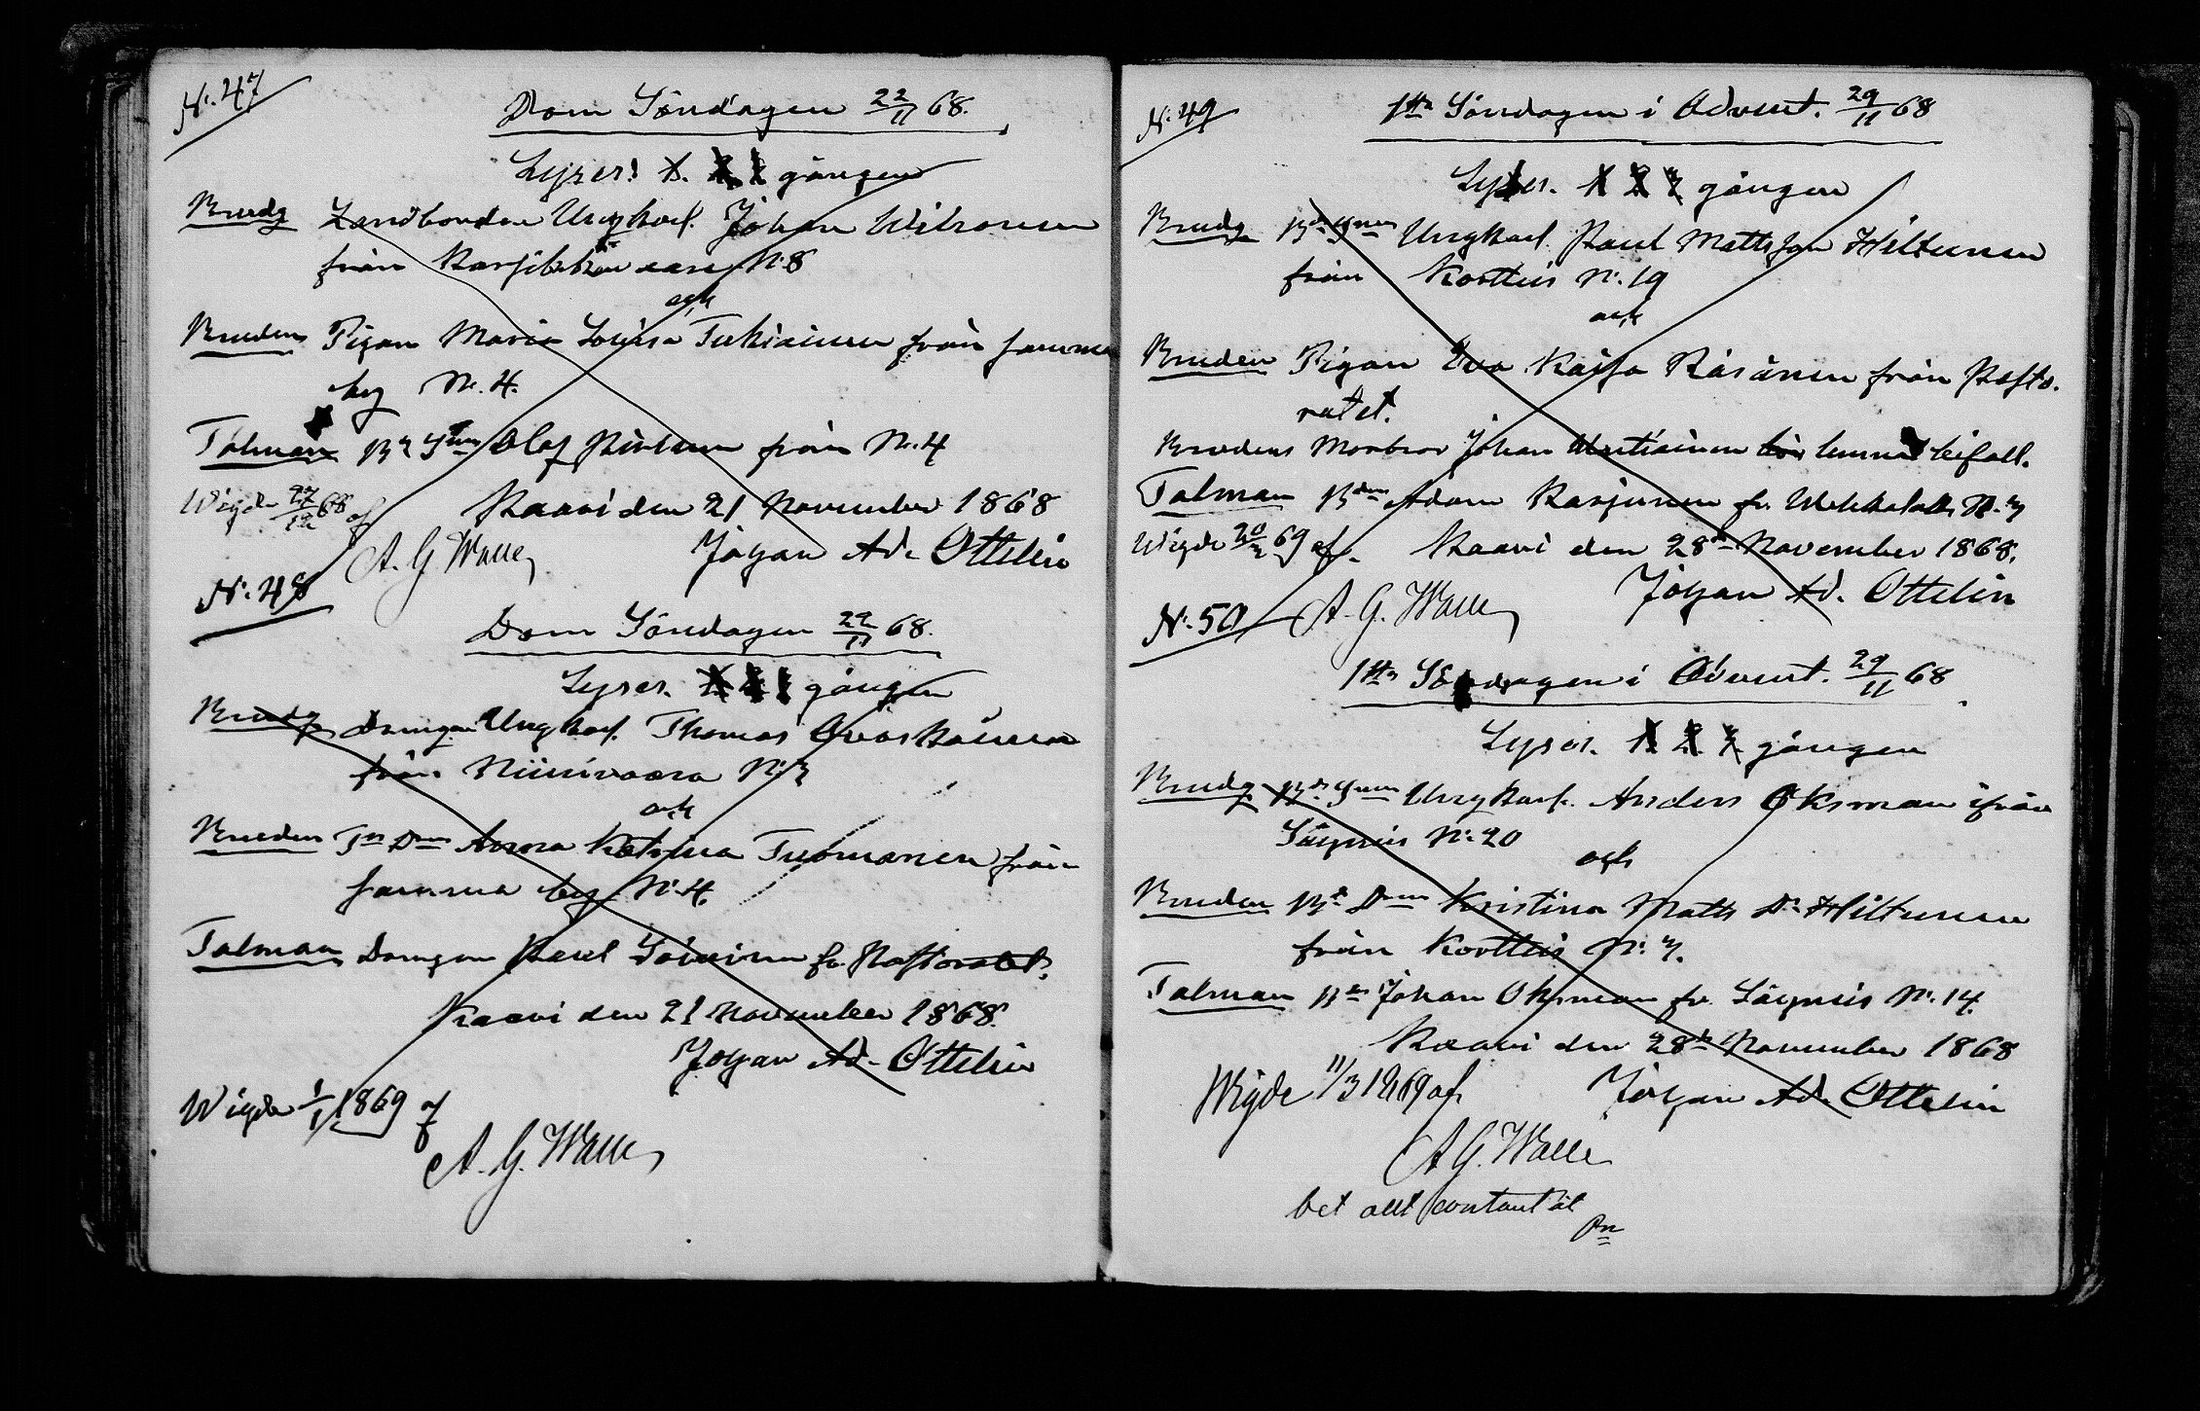 N:47
Dom Söndagen 22/11 68.
Lyses 1. 2 3 gången
Brudg Landbonden Ungkarl. Johan Wilsonen
från N:8
och
Bruden Pigan Maria Lovisa Tukiainen från samma
by N. 4.
Talman Olof från N. 4
Wigde 27/12 68 af Kaavi den 21 November 1868
A. G. Walle Johan Ad. Ottelin
N:48
Dom Söndagen 22/11 68.
Lyses. 1 2 3 gången
Brudg Drängen Ungkarl. Thomas Ovaskainen
från Niinivaara N:
och
Bruden Anna Katrina Tuomanen från
samma by N:4.
Talman Drängen Paul fr. Pastoratet.
Kaavi den 21 November 1868.
Johan Ad. Ottelin
Wigde 1/1 1869 af
A. G. Walle
N:49
1sta Söndagen i Advent. 29/11 68
Lyses. 1 2 3 gången
Brudg Bd Snen Ungkarl. Paul Mattsson Hiltunen
från Kortteis N:19
och
Bruden Pigan Eva Kaisa Räsänen från Pasto-
ratet.
Brudens Morbror Johan bifall.
Talman Bden Adam Karjunen fr.
Wigde 69 af. Kaavi den 28de November 1868.
A. G. Walle Johan Ad. Ottelin
N:50
1sta Söndagen i Advent. 29/11 68
Lyses. 1. 2 3 gången
Brudg Bds Snen Ungkarl. Anders Öksman ifrån
Säyneis N:20
och
Bruden Bd Dren Kristina Matts Dr Hiltunen
från Kortteis N:
Talman Bn Johan Öksman fr. Säyneis N:14.
Kaavi den 28de November 1868
Wigde 11/3 1869 af. Johan Ad. Ottelin
A G. Walle
bet allt contant